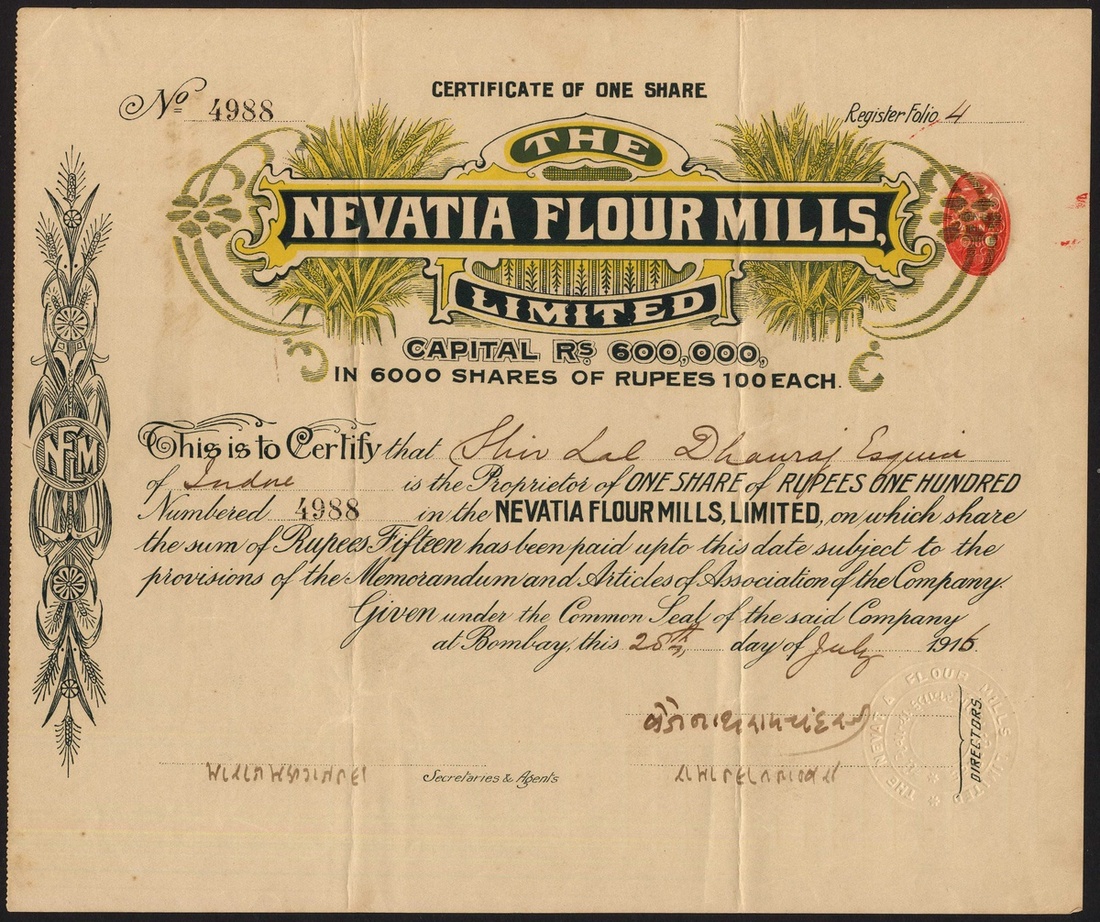 CERTIFICATE OF ONE SHARE
No 4988
Register Folio 4
THE
NEVATIA FLOUR MILLS,
LIMITED
CAPITAL Rs 600,000,
IN 6000 SHARES OF RUPEES 100 EACH.
NFLM
This is to Certify that Shiv Lal Dhanraj Esquire
of Indore is the Proprietor of ONE SHARE of RUPEES ONE HUNDRED
Numbered 4988 in the NEVATIA FLOUR MILLS, LIMITED, on which share
the sum of Rupees Fifteen has been paid upto this date subject to the
provisions of the Memorandum and Articles of Association of the Company.
Given under the Common Seal of the said Company
at Bombay, this 25th day of July 1916.
THE NEVATIA FLOUR MILLS LIMITED
DIRECTORS.
Secretaries & Agents